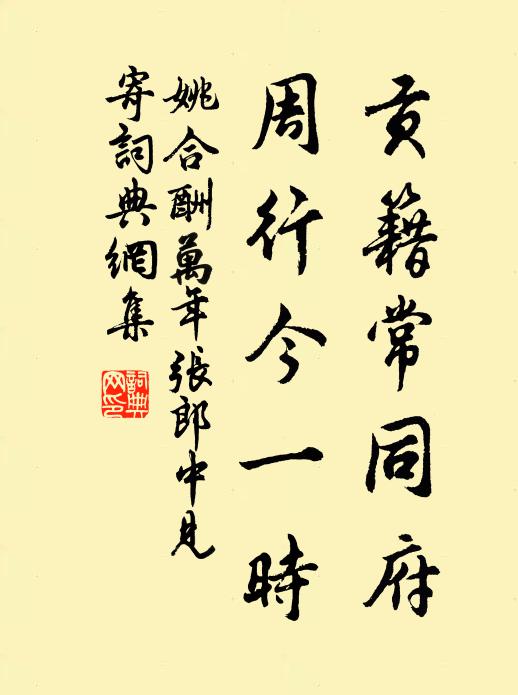 贡籍常同府
周行今一時
姚合酬萬年張郎中見
寄詞典網集
詞典網印